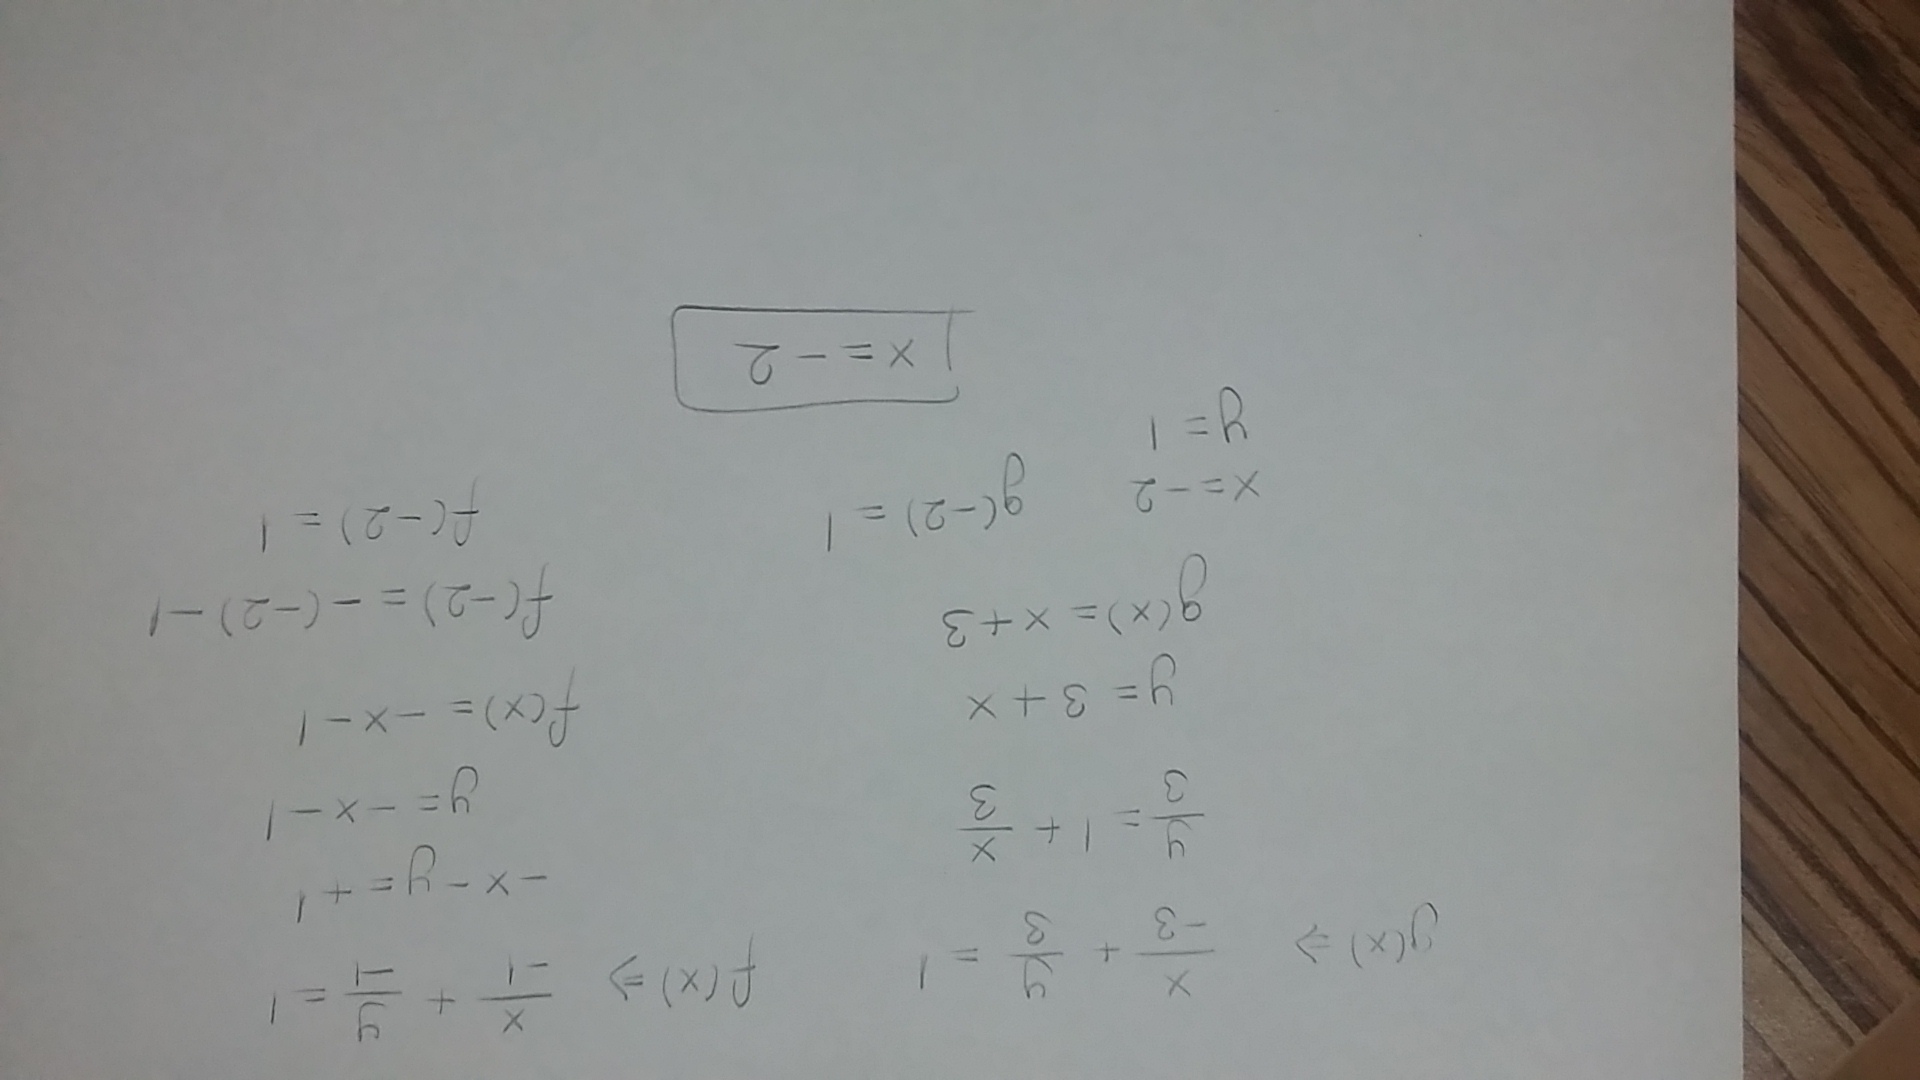 g(x) ⇒ x/-3 + y/3 = 1
y/3 = 1 + x/3
y = 3 + x
g(x) = x + 3
x = -2 g(-2) = 1
y = 1
f(x) ⇒ x/-1 + y/-1 = 1
-x - y = +1
y = -x - 1
f(x) = -x - 1
f(-2) = -(-2) - 1
f(-2) = 1
x = -2